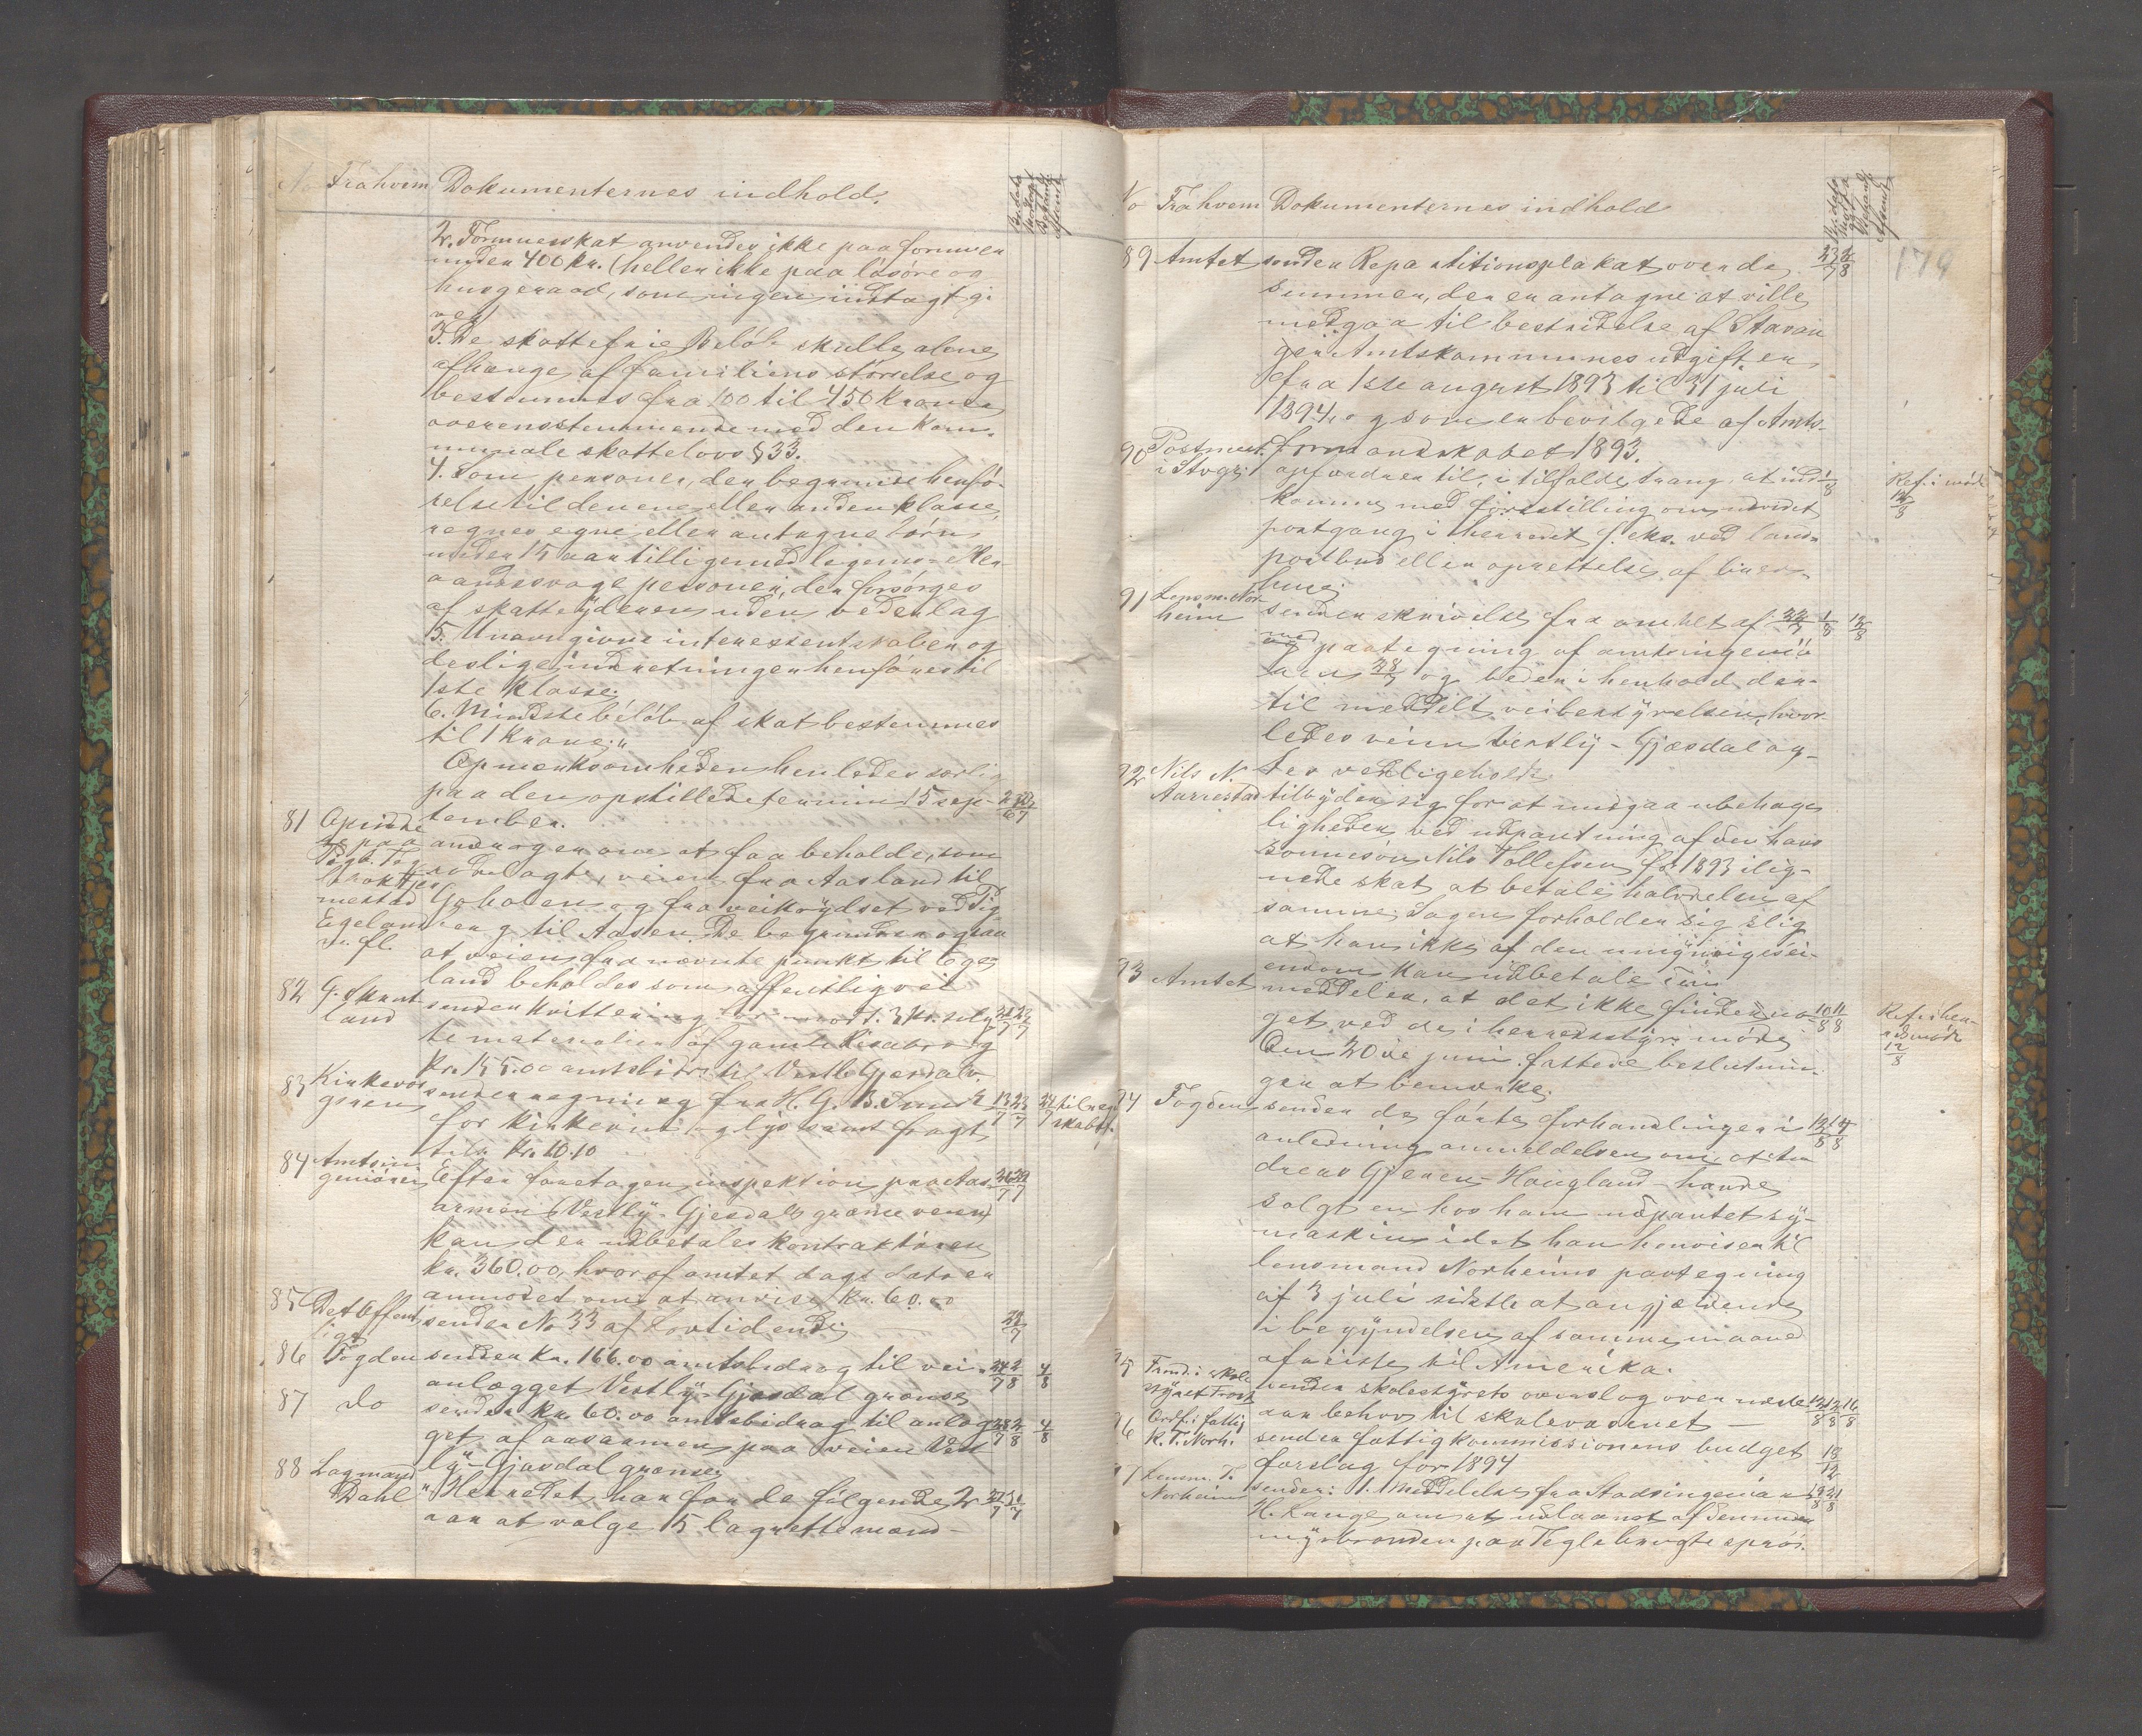 No Fra hvem Dokumenternes indhold.
2. Formuesskat anvendes ikke paa formuer
under 400 kr. (heller ikke paa løsøre og
husgeraad, som ingen indtægt gi
ver)
3. De skattefrie Beløb skulle alene
afhænge af familiens størrelse og
bestemmes fra 100 til 450 kroner
overensstemmende med den kom-
munale skattelovs § 33.
4. Som personer, der begrunde henfø-
relse til den ene eller anden klasse,
regnes egne eller antagne børn
under 15 aar tilligemed legems- eller
aandssvage personer, der forsørges
af skatteyderen uden vederlag
5. Unavngivne interessentskaber og
deslige indretninger henføres til
1ste klasse.
6. Mindste beløb af skat bestemmes
til 1 krone."
Opmærksomheden henledes særlig
paa den opstillede termin 15 sep-
tember.
81 Opsidde
re paa
andrager om at faa beholde, som
rodelagt, veien fra Aasland til
mestad
Egeland
m. fl.
og fra veikrydset ved Tig
en g til Aasen. De begrunder ogsaa
at veien fra nævnte punkt til Ege-
land beholdes som offentlig vei
82 G. Skaut
land
sender kvittering for modt. 3 kr. solg 21/7 22/7
te materialier af gamle bro og
kr. 155.00 amtsbidr. til Vestly Gjesdalv.
83 Kirkever
geren
sender regning fra H. G. B. Sundt 13/7 23/7 24/7 til reg
skabet.
for kirkevin - lys samt fragt
tils. kr. 10.10
84 Amtsin
geniøren
Efter foretagen inspektion paa Aas- 26/7 29/7
armen (Vestly - Gjesdals grændse veien)
kan der udbetales kontraktøren
kr. 360.00, hvoraf amtet dags dato er
anmodet om at anvise kr. 60.00
85 Det Offent
lige
sender No 33 af Lovtidende 29/7
86 Fogden sender kr. 166.00 amtsbidrag til vei- 24/7 2/8 4/8
anlægget Vestly - Gjesdal grænse
87 do sender kr. 60.00 amtsbidrag til anlæg 28/7 2/8 4/8
get af aasarmen paa veien Vest
ly - Gjesdal grænse
88 Lagmand
Dahl
"Herredet har for de følgende 2 27/7 31/7
aar at vælge 15 lagrettemænd -
No Fra hvem Dokumenternes indhold
179
89 Amtet sender Repartitionsplakat over de 27/7 2/8
summer, der er antagne at ville
medgaa til bestridelse af Stavan
ger Amtskommunes udgifter
fra 1ste august 1893 til 31 juli
1894, og som er bevilgede af Amts-
formandskabet 1893.
90 Postmest.
i Stvgr.
opfordrer til, i tilfælde trang, at ind-
Ref. i møde
12/8
komme med forestilling om udvidet
postgang i herredet f. eks. ved land-
postbud eller oprettelse af brev-
huse.
91 Lensm. Nor
heim
sender skrivelse fra amtet af 22/7 1/8 12/8
med paategning af amtsingeniø
ren 28/7 og beder i henhold der-
til meddelt veibestyrelsen, hvor-
ledes veien Vestly - Gjæsdal ag-
tes vedligeholdt.
92 Nils N.
Aarrestad
tilbyder sig for at undgaa ubehage
ligheder ved udpantning af den hans
sønnesøn Nils Tollefsen for 1893 ilig-
nede skat at betale halvdelen af
samme. Sagen forholder sig slig
at han ikke af den umyndiges ei-
endom kan udbetale
93 Amtet meddeler, at det ikke finder no- 10/8 11/8
Ref. i her-
redsmøde
12/8
get ved de i herredsstyr. møde
den 20de juni fattede beslutnin-
ger at bemærke.
94 Fogden sender de førte forhandlinger i 12/8 14/8
anledning anmeldelsen om, at An
dreas Gjerens - Haugland havde
solgt en hos ham udpantet sy-
maskin idet han henviser til
lensmand Norheims paategning
af 3 juli sidstl. at angjældende
i begyndelsen af samme maaned
afreiste til Amerika.
95 Formd. i skole
styret
sender skolestyrets overslag over næste 12/8 12/8 16/8
aars behov til skolevæsenet -
96 Ordf. i fattig
k. T. Norh.
sender fattigkommissionens budget
forslag for 1894
97 Lensm. T.
Norheim
sender: 1. Meddelelse fra Stadsingeniør 18/8 21/8
H. Lange om at udlaanet af
myrbranden paa Tegle brugte sprøi-